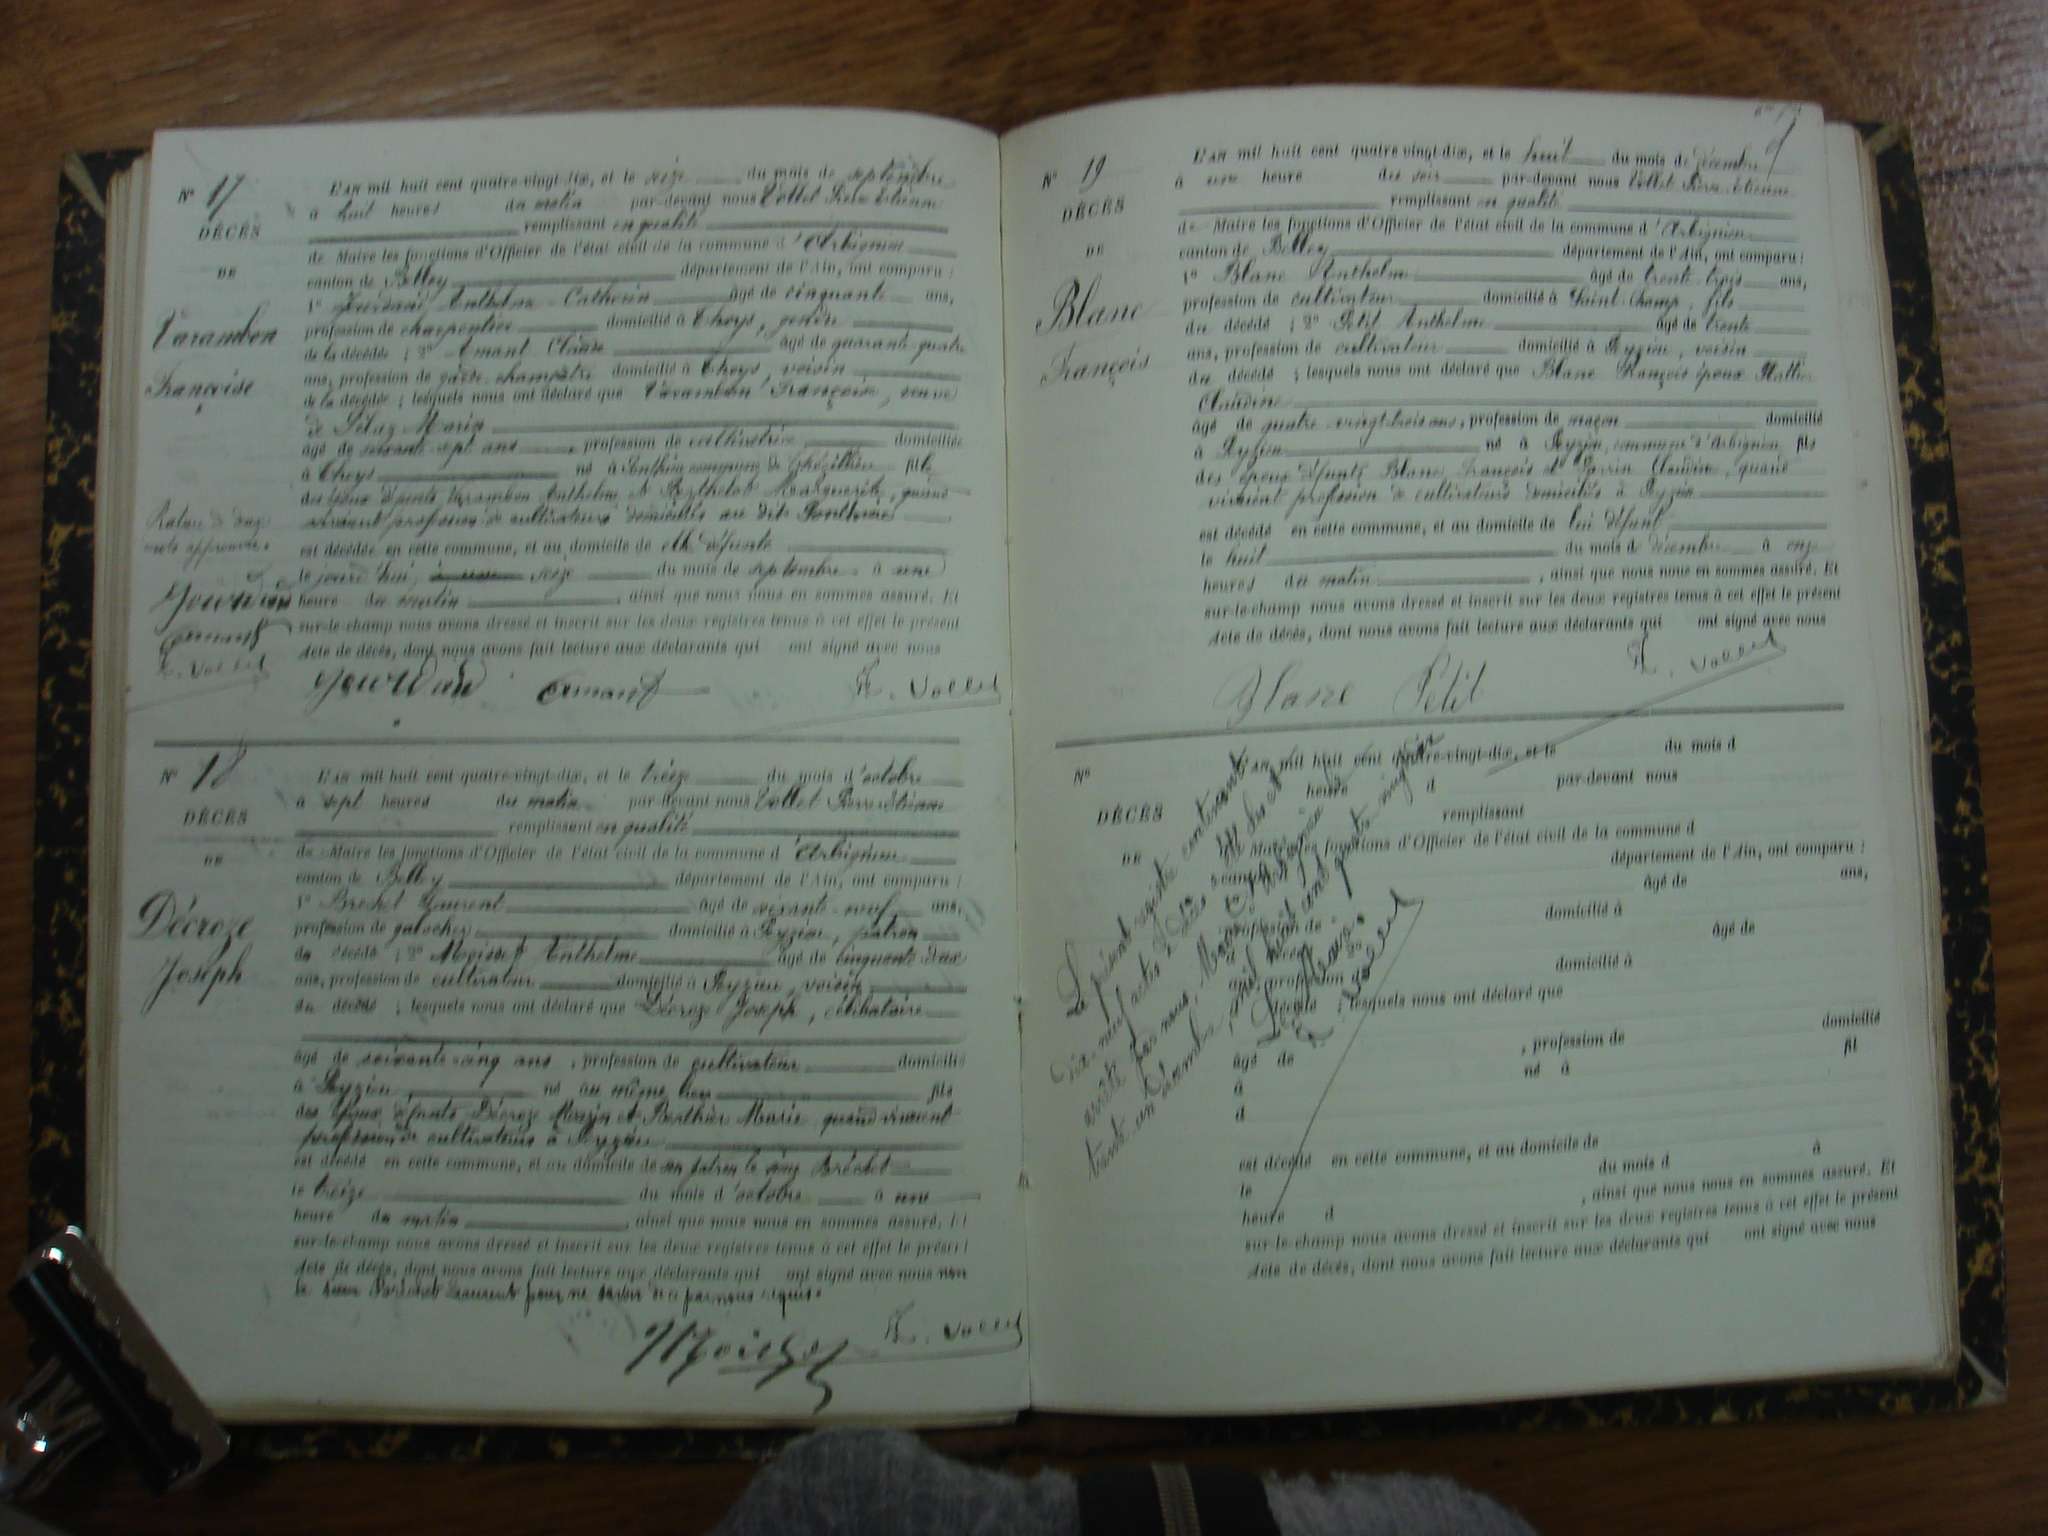 N° 17
DÉCÈS
DE
Varambon
Françoise
Rature de deux
mots approuvée.
Jourdan
Amant
E. Vollet
L'an mil huit cent quatre-vingt-dix, et le seize du mois de septembre
à huit heures du matin par-devant nous Vollet Pierre Etienne
remplissant en qualité
de Maire les fonctions d'Officier de l'état civil de la commune d'Arbignieu
canton de Belley département de l'Ain, ont comparu :
1° Jourdan Anthelme Catherin âgé de cinquante ans,
profession de charpentier domicilié à Thoys, gendre
de la décédée ; 2° Amant Claude âgé de quarante quatre
ans, profession de garde-champêtre domicilié à Thoys, voisin
de la décédée ; lesquels nous ont déclaré que Varambon Françoise, veuve
de Pélaz Marin
âgé de soixante-sept ans, profession de cultivatrice domiciliée
à Thoys né à Ponthieu commune de fille
des époux défunts Varambon Anthelme et Berthelot Marguerite, quand
vivaient profession de cultivateurs domiciliés au dit Ponthieu
est décédée en cette commune, et au domicile de elle défunte
le jourd'hui seize du mois de septembre à une
heure du matin, ainsi que nous nous en sommes assuré. Et
sur-le-champ nous avons dressé et inscrit sur les deux registres tenus à cet effet le présent
Acte de décès, dont nous avons fait lecture aux déclarants qui ont signé avec nous
Jourdan Amant E. Vollet
N° 18
DÉCÈS
DE
Décroze
Joseph
L'an mil huit cent quatre-vingt-dix, et le treize du mois d'octobre
à sept heures du matin par-devant nous Vollet Pierre Etienne
remplissant en qualité
de Maire les fonctions d'Officier de l'état civil de la commune d'Arbignieu
canton de Belley département de l'Ain, ont comparu :
1° Brechet Laurent âgé de soixante-neuf ans,
profession de galochez domicilié à Peyzieu, patron
du décédé ; 2° Moisset Anthelme âgé de cinquante deux
ans, profession de cultivateur domicilié à Peyzieu, voisin
du décédé ; lesquels nous ont déclaré que Décroze Joseph, célibataire
âgé de soixante-cinq ans, profession de cultivateur domicilié
à Peyzieu, né au même lieu fils
des époux défunts Décroze et Berthier Marie quand vivaient
profession de cultivateurs à Peyzieu
est décédé en cette commune, et au domicile de son patron le sieur Bréchet
le treize du mois d'octobre à une
heure du matin, ainsi que nous nous en sommes assuré. Et
sur-le-champ nous avons dressé et inscrit sur les deux registres tenus à cet effet le présent
Acte de décès, dont nous avons fait lecture aux déclarants qui ont signé avec nous non
le sieur Bréchet Laurent pour ne savoir de ce par nous requis.
Moisset E. Vollet
N° 19
DÉCÈS
DE
Blanc
François
L'an mil huit cent quatre-vingt-dix, et le huit du mois de décembre
à heure du soir par-devant nous Vollet Pierre Etienne
remplissant en qualité
de Maire les fonctions d'Officier de l'état civil de la commune d'Arbignieu
canton de Belley département de l'Ain, ont comparu :
1° Blanc Anthelme âgé de trente trois ans,
profession de cultivateur domicilié à Saint-Champ, fils
du décédé ; 2° Petit Anthelme âgé de trente
ans, profession de cultivateur domicilié à Peyzieu, voisin
du décédé ; lesquels nous ont déclaré que Blanc François époux
Claudine
âgé de quatre-vingt-trois ans, profession de maçon domicilié
à Peyzieu né à Peyzieu, commune d'Arbignieu fils
des époux défunts Blanc François et Claudine, quand
vivaient profession de cultivateurs domiciliés à Peyzieu
est décédé en cette commune, et au domicile de lui défunt
le huit du mois de décembre à onze
heures du matin, ainsi que nous nous en sommes assuré. Et
sur-le-champ nous avons dressé et inscrit sur les deux registres tenus à cet effet le présent
Acte de décès, dont nous avons fait lecture aux déclarants qui ont signé avec nous
Blanc Petit E. Vollet
N°
DÉCÈS
DE
L'an mil huit cent quatre-vingt-dix, et le du mois d
heure d par-devant nous
remplissant
d Maire les fonctions d'Officier de l'état civil de la commune d
canton d département de l'Ain, ont comparu :
âgé de ans,
profession de domicilié à
d 2° âgé de
ans, profession d domicilié à
décédé ; lesquels nous ont déclaré que
âgé de , profession de domicilié
à né à fil
d
est décédé en cette commune, et au domicile de
le du mois d à
heure d , ainsi que nous nous en sommes assuré. Et
sur-le-champ nous avons dressé et inscrit sur les deux registres tenus à cet effet le présent
Acte de décès, dont nous avons fait lecture aux déclarants qui ont signé avec nous
Le présent registre contenant
dix-neuf actes de Décès clos et
arrêté par nous, Maire d'Arbignieu le
trente un Décembre mil huit cent quatre-vingt-dix
Le Maire.
E. Vollet